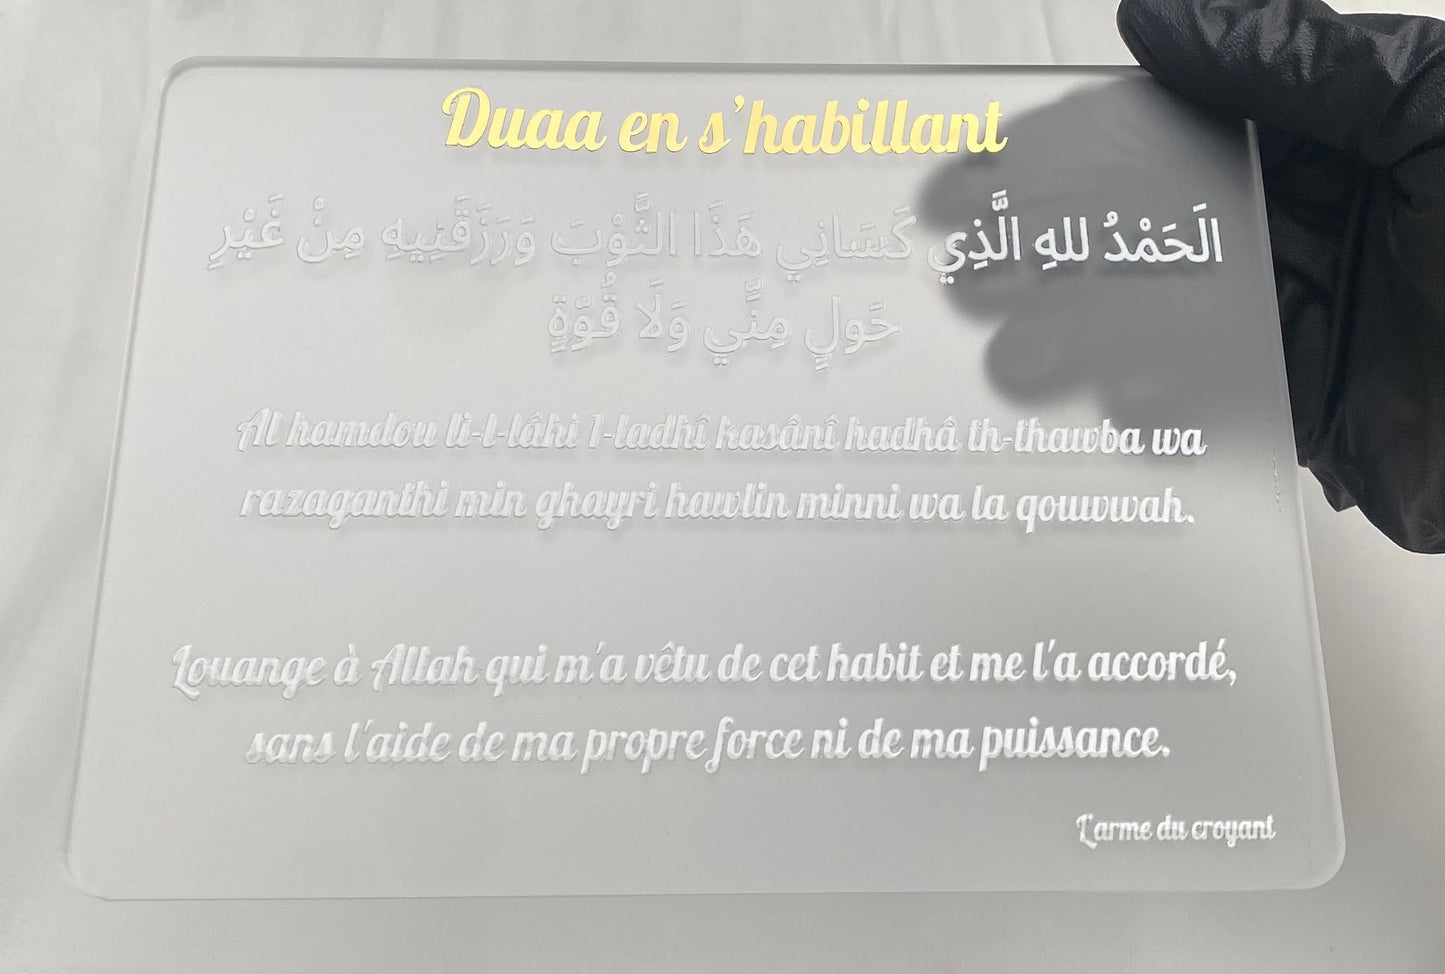 Duaa en s'habillant
الَحَمْدُ للهِ الَّذِي كَسَانِي هَذَا الثَّوْبَ وَرَزَقَنِيهِ مِنْ غَيْرِ
حَولٍ مِنِّي وَلَا قُوَّةٍ
Al hamdou li-l-lâhi 1-ladhî kasânî hadhâ th-thawba wa
razaganthi min ghayri hawlin minni wa la qouwwah.
Louange à Allah qui m'a vêtu de cet habit et me l'a accordé,
sans l'aide de ma propre force ni de ma puissance.
L'arme du croyant